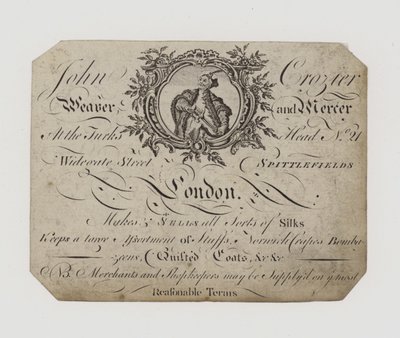 John Crozier
Weaver, and Mercer
At the Turks Head No. 21
Widegate Street SPITTLEFIELDS
London.
Makes & SELLS all Sorts of Silks
Keeps a large Aſsortment of Stuffs, Norwich Crapes Bomba-
-zeens, Quilted Coats, &c &c
NB. Merchants and Shopkeepers may be Supply'd on ye. most
Reaſonable Terms